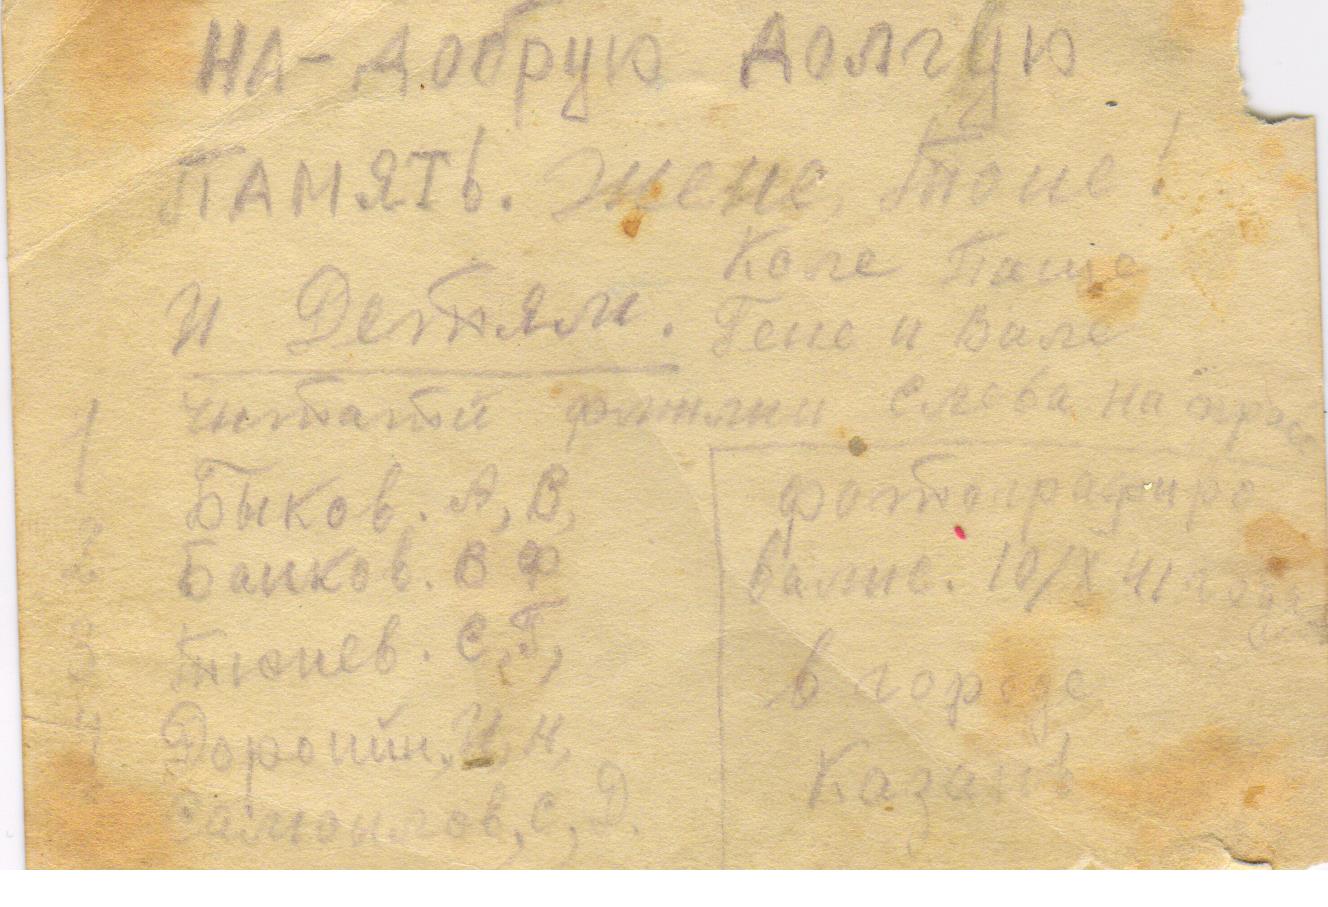 НА-добрую долгую
ПАМЯТЬ. жене, Тоне!
и Детям. Коле Паше
Гене и Вале
читатй фамлии слева на право
1 Быков. А, В,
2 Банков. В Ф
3 Тюнев. С, Г,
4 Доронин, И, Н,
Самойлов, С, Д.
фотографиро
вались. 10/X 41 года
в городе
Казань